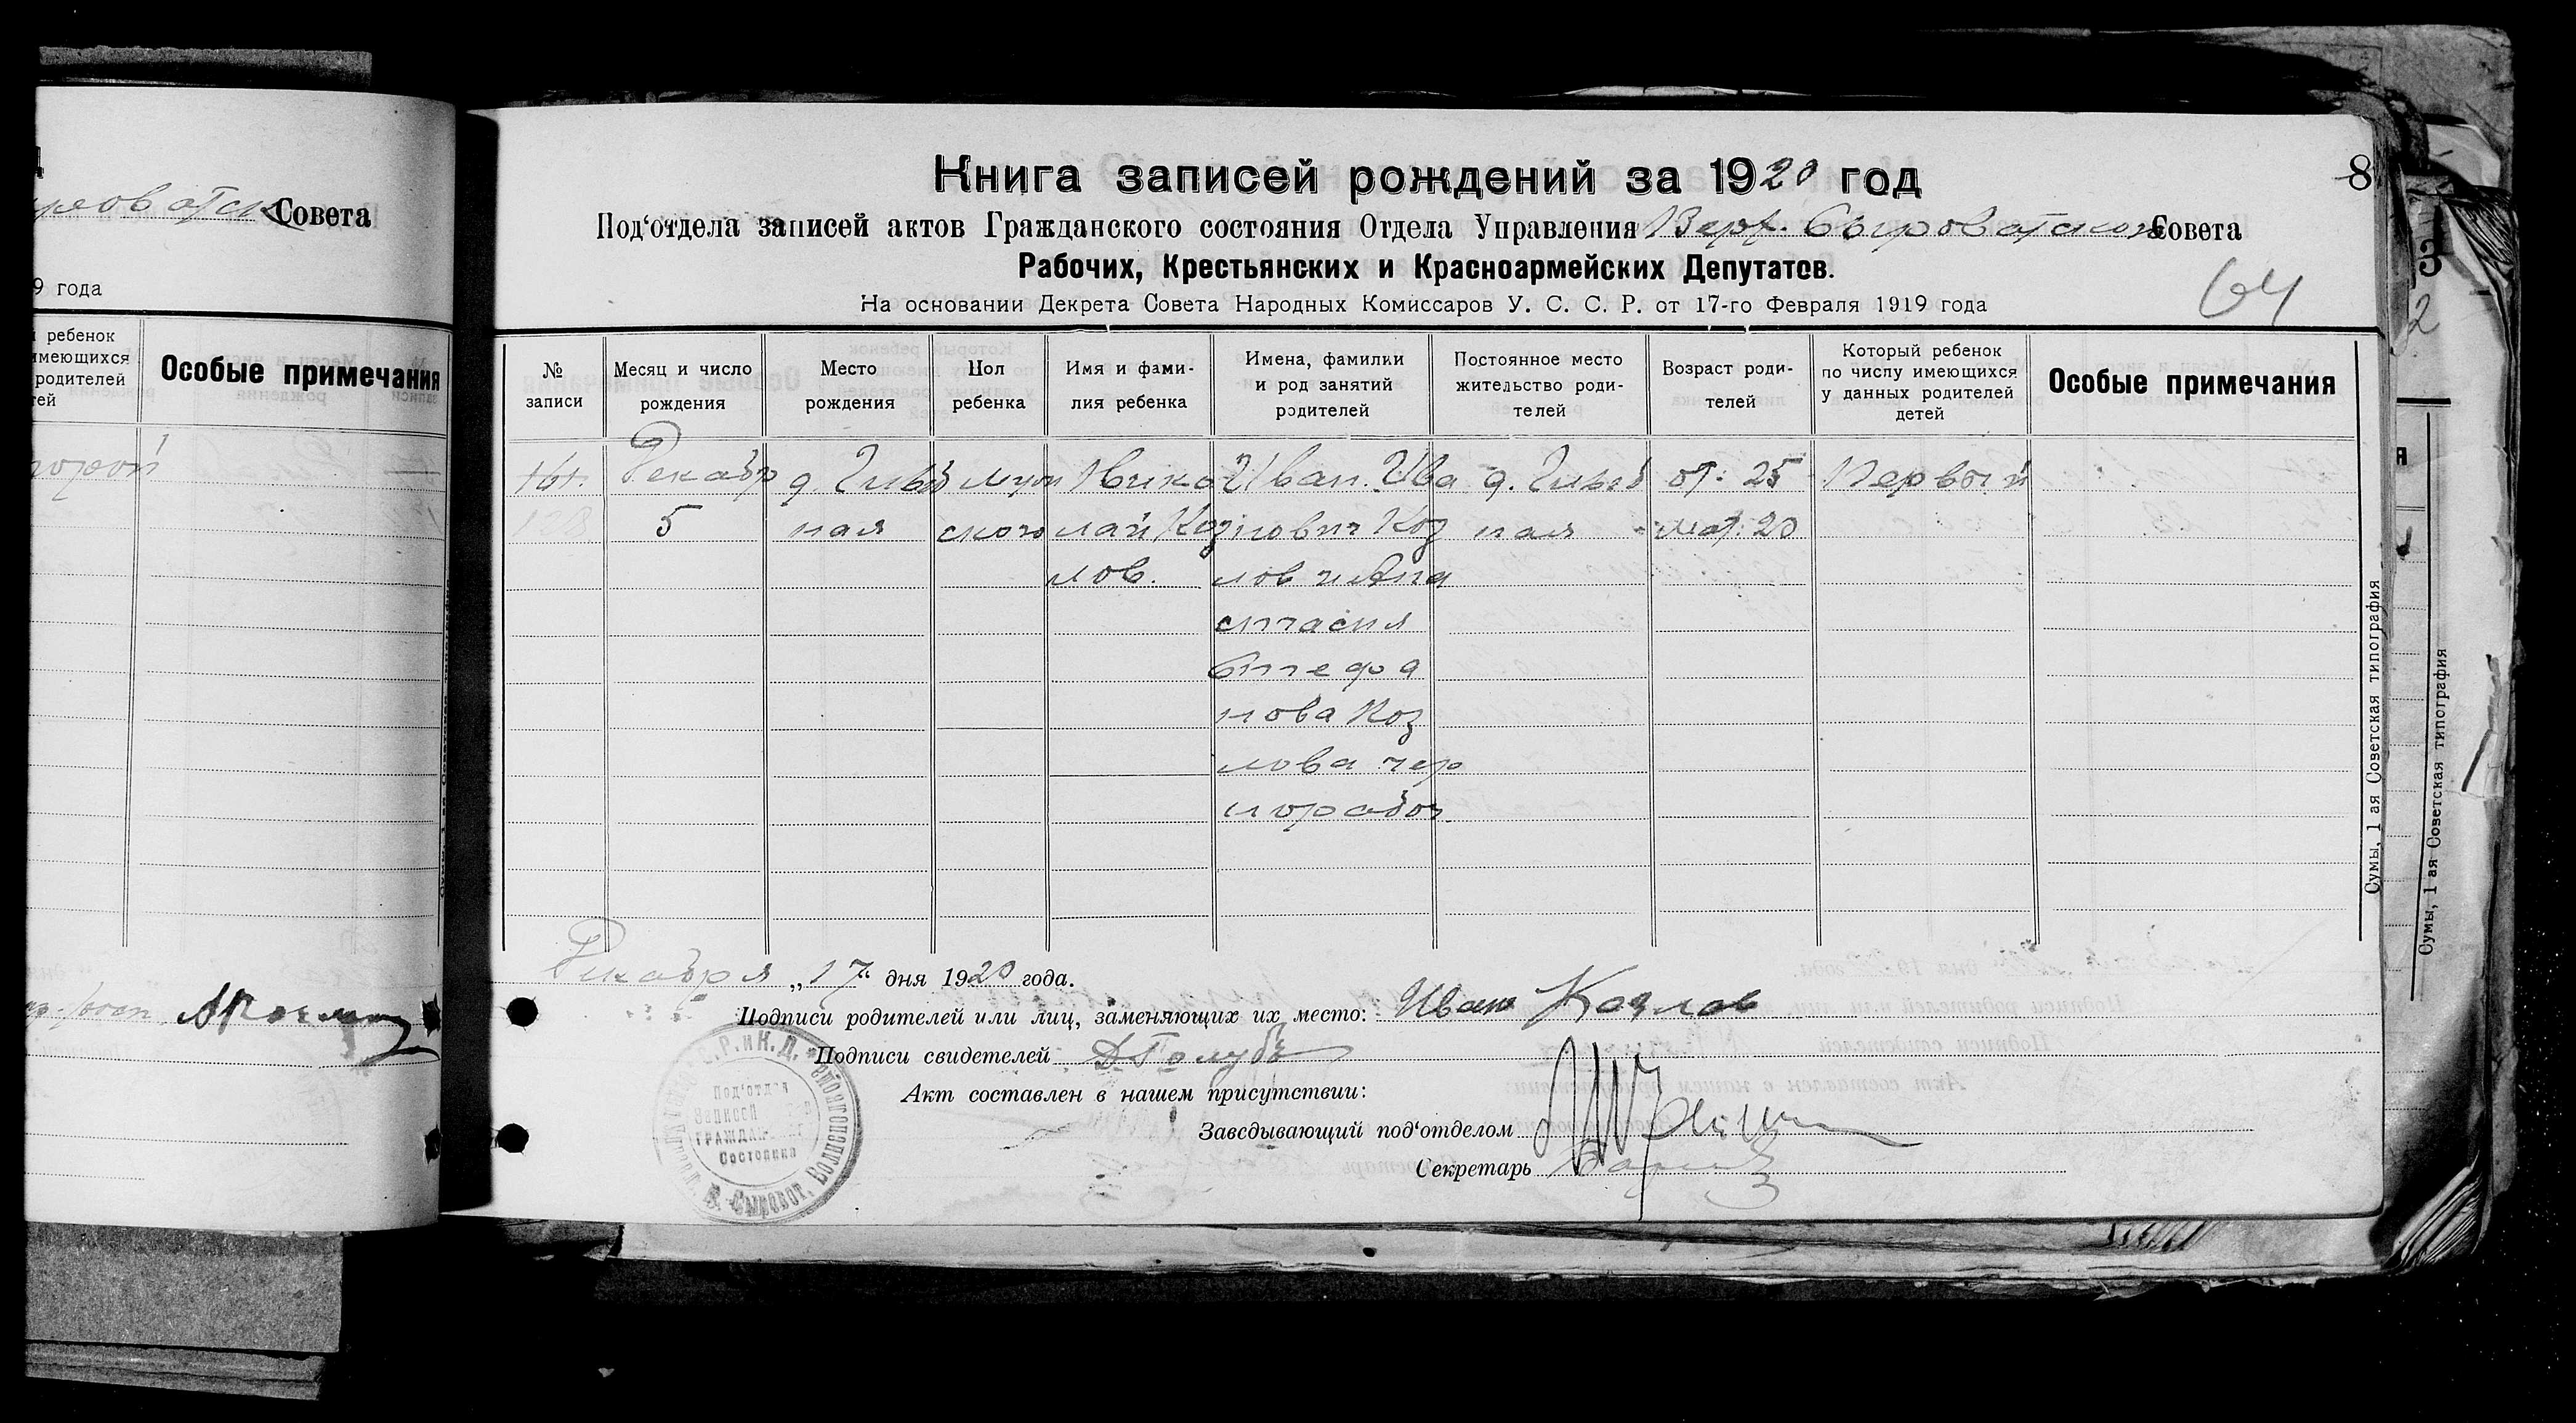 уховатск Совета
9 года
й ребенок
имеющихся
родителей
тей
Особые примечания
Книга записей рождений за 1920 год
8
Под‘отдела записей актов Гражданского состояния Отдела Управления Верх. Сыроватской Совета
Рабочих, Крестьянских и Красноармейских Депутатов.
На основании Декрета Совета Народных Комиссаров У. С. С. Р. от 17-го Февраля 1919 года
64
№ записи
Месяц и число рождения
Место рождения
Пол ребенка
Имя и фами-
лия ребенка
Имена, фамилии
и род занятий
родителей
Постоянное место
жительство роди-
телей
Возраст роди-
телей
Который ребенок
по числу имеющихся
у данных родителей
детей
Особые примечания
Декабр
5
д. Гильб
ная
муж
ского
Нико
лай Коз
лов.
Иван. Ива
нович Коз
лов и Ана
стасия
Стефа
нова Коз
лова чер
норабоч
д. Гильб
ная
от: 25
мат: 20
Первый
Декабря „17“ дня 1920 года.
Подписи родителей или лиц, заменяющих их место: Иван Козлов
Подписи свидетелей Д. Голубь
Акт составлен в нашем присутствии:
Заведывающий под‘отделом
Секретарь
Под‘отдел
Записей
Гражданск
Состояния
В.-Сыроват. Волисполкома
Сумы, 1 ая Советская типография
3
2
я
Сумы, 1 ая Советская типография